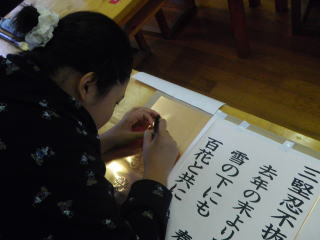 三竪忍不抜
去年の木より
雪の下にも
百花と共に 春